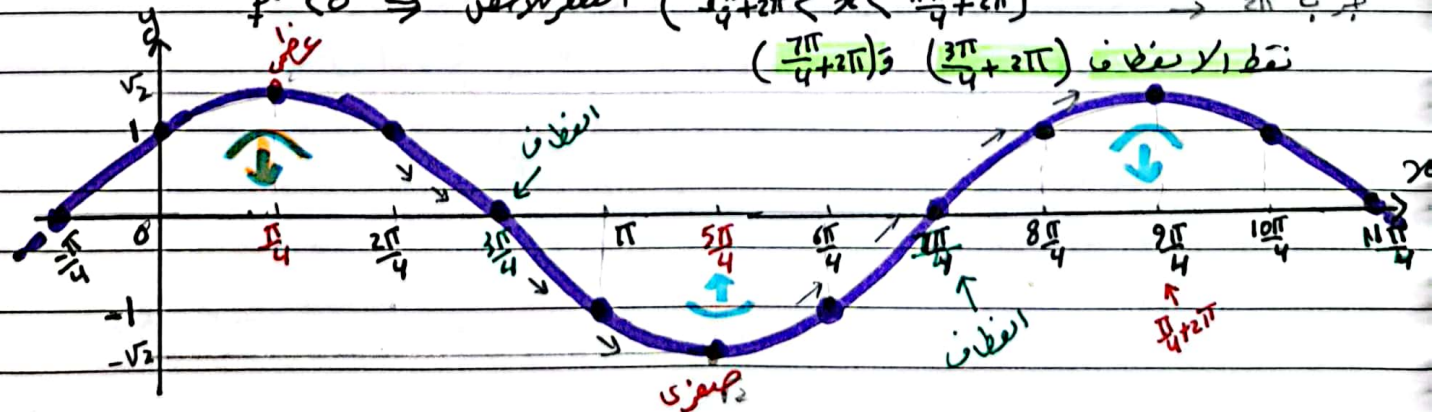 (π/4+2π < x <
(7π/4+2π) و (3π/4+2π) نقط الانعطاف
y
عظمى
√2
1
انعطاف
x
-π/4 0 π/4 2π/4 3π/4 π 5π/4 6π/4 7π/4 8π/4 9π/4 10π/4 11π/4
-1
انعطاف
π/4+2π
-√2
صغرى